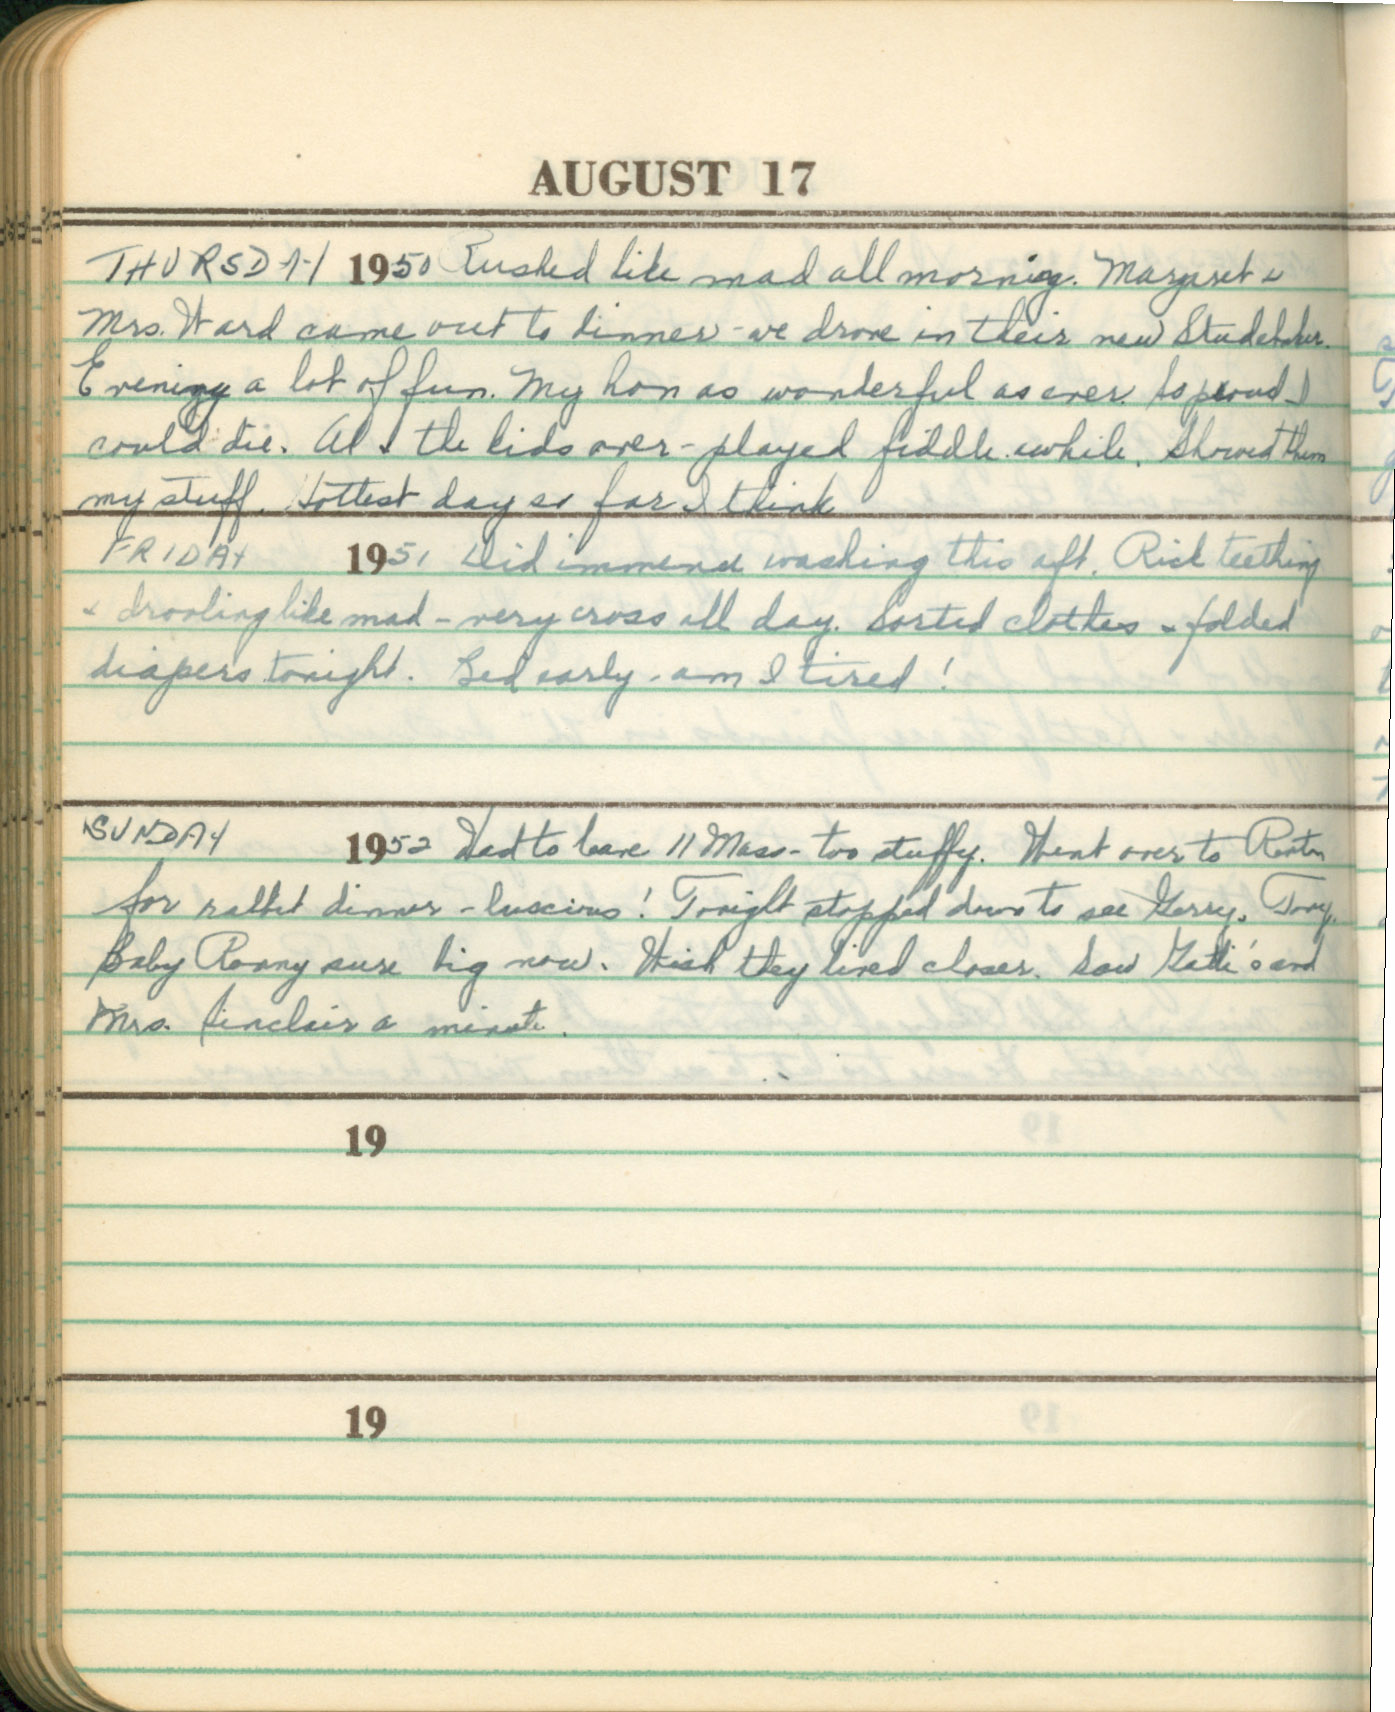 AUGUST 17
THURSDAY 1950 Rushed like mad all morning. Margaret &
Mrs. Ward came out to dinner - we drove in their new Studebaker.
Evening a lot of fun. My hon as wonderful as ever. So proud I
could die. Al & the kids over - played fiddle awhile. Showed them
my stuff. Hottest day so far I think
FRIDAY 1951 Did immense washing this aft. Rick teething
& drooling like mad - very cross all day. Sorted clothes & folded
diapers tonight. Bed early - am I tired!
SUNDAY 1952 Had to leave 11 Mass - too stuffy. Went over to
for rabbit dinner - luscious! Tonight stopped down to see Gerry, Tony.
Baby Ronny sure big now. Wish they lived closer. Saw and
Mrs. Sinclair a minute.
19
19